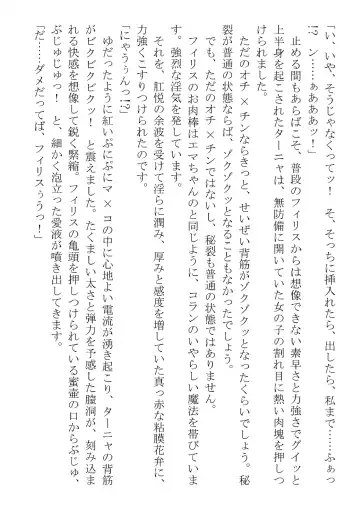 「い、いや、そうじゃなくってッ！　そ、そっちに挿入れたら、出したら、私まで……ふぁっ
!?　ン……ぁぁああぁッ！」
　止める間もあらばこそ、普段のフィリスからは想像できない素早さと力強さでグイッと
上半身を起こされたターニャは、無防備に開いていた女の子の割れ目に熱い肉塊を押しつ
けられました。
　ただのオチ×チンならきっと、せいぜい背筋がゾクゾクッとなったくらいでしょう。秘
裂が普通の状態ならば、ゾクゾクッとなることもなかったでしょう。
　でも、ただのオチ×チンではないし、秘裂も普通の状態ではありません。
　フィリスのお肉棒はエマちゃんのと同じように、コランのいやらしい魔法を帯びていま
す。強烈な淫気を発しています。
　それを、肛悦の余波を受けて淫らに潤み、厚みと感度を増した真っ赤な粘膜花弁に、
力強くこすりつけられたのです。
「にゃううんっ!?」
　ゆだったように紅いぷにぷにマ×コの中に心地よい電流が湧き起こり、ターニャの背筋
がビクビクビクッ！　と震えました。たくましい太さと弾力を予感した膣洞が、刻み込ま
れる快感を想像して鋭く緊縮。フィリスの亀頭を押しつけられている蜜壺の口からぶじゅ、
ぶじゅじゅっ！　と、細かく泡立った愛液が噴き出してきます。
「だ……ダメだってば、フィリスぅうっ！」